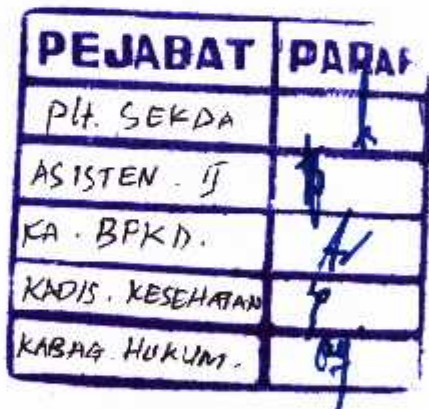 PEJABAT PARAF
Plt. SEKDA
ASISTEN . II
KA . BPKD.
KADIS . KESEHATAN
KABAG HUKUM .